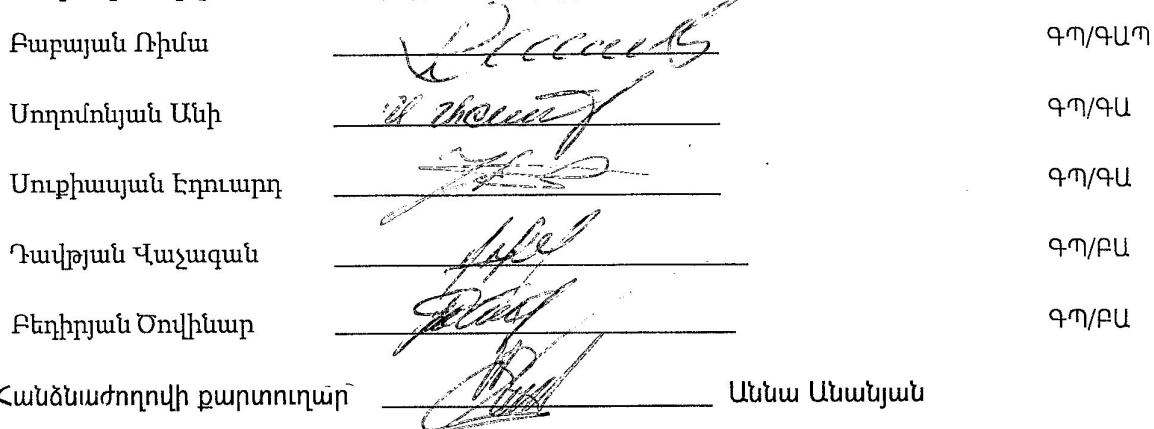 Բաբայան Ռիմա ԳՊ/ԳԱՊ
Սողոմոնյան Անի ԳՊ/ԳԱ
Սուքիասյան Էդուարդ ԳՊ/ԳԱ
Դավթյան Վաչագան ԳՊ/ԲԱ
Բեդիրյան Ծովինար ԳՊ/ԲԱ
Հանձնաժողովի քարտուղար՝ Աննա Անանյան